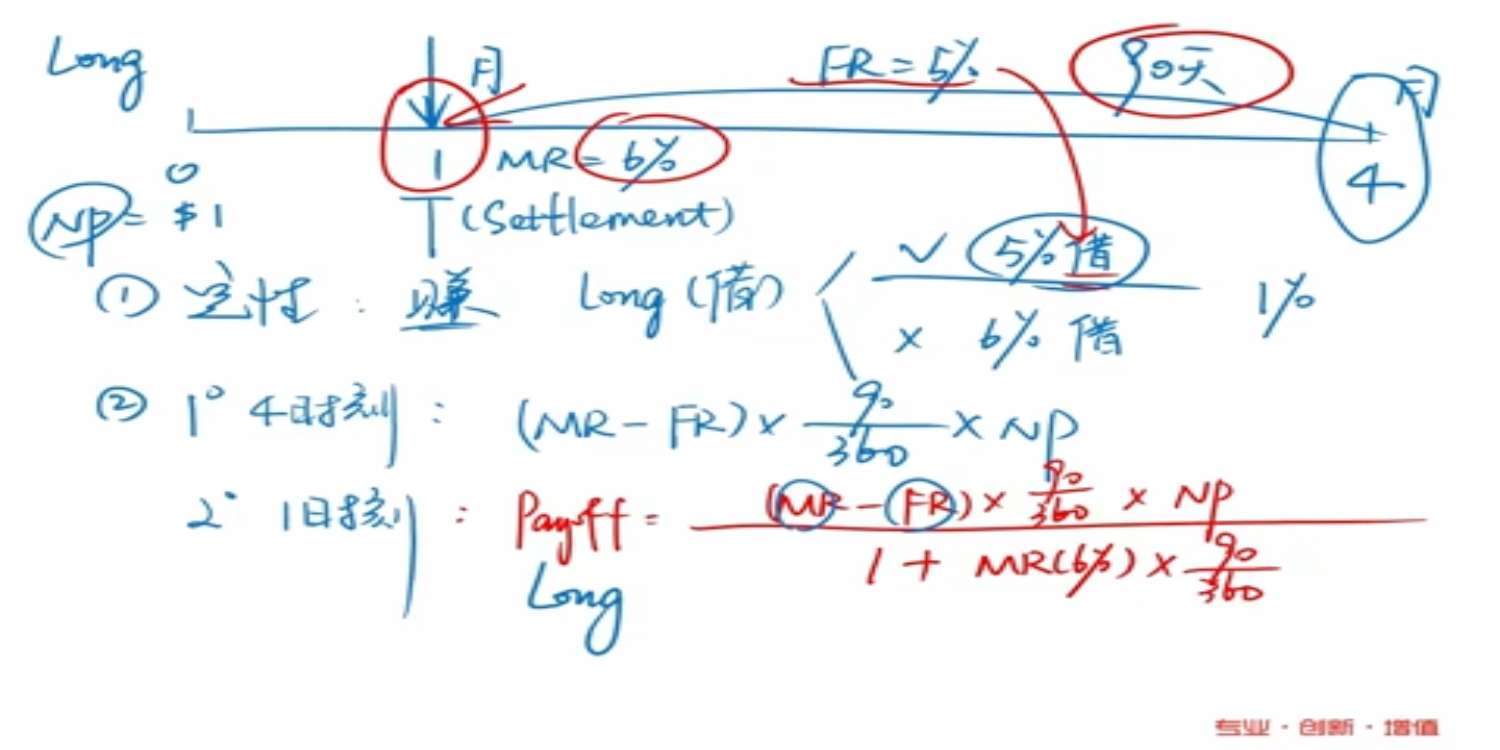 Long 月 FR = 5% 90天 月
0 1 MR = 6% 4
NP = $1 T (Settlement)
① 定性 : 赚 Long (借) √ 5% 借 1%
× 6% 借
② 1° 4时刻 : (MR - FR) × 90/360 × NP
2° 1时刻 : Payoff = (MR - FR) × 90/360 × NP
1 + MR(6%) × 90/360
Long
专业·创新·增值